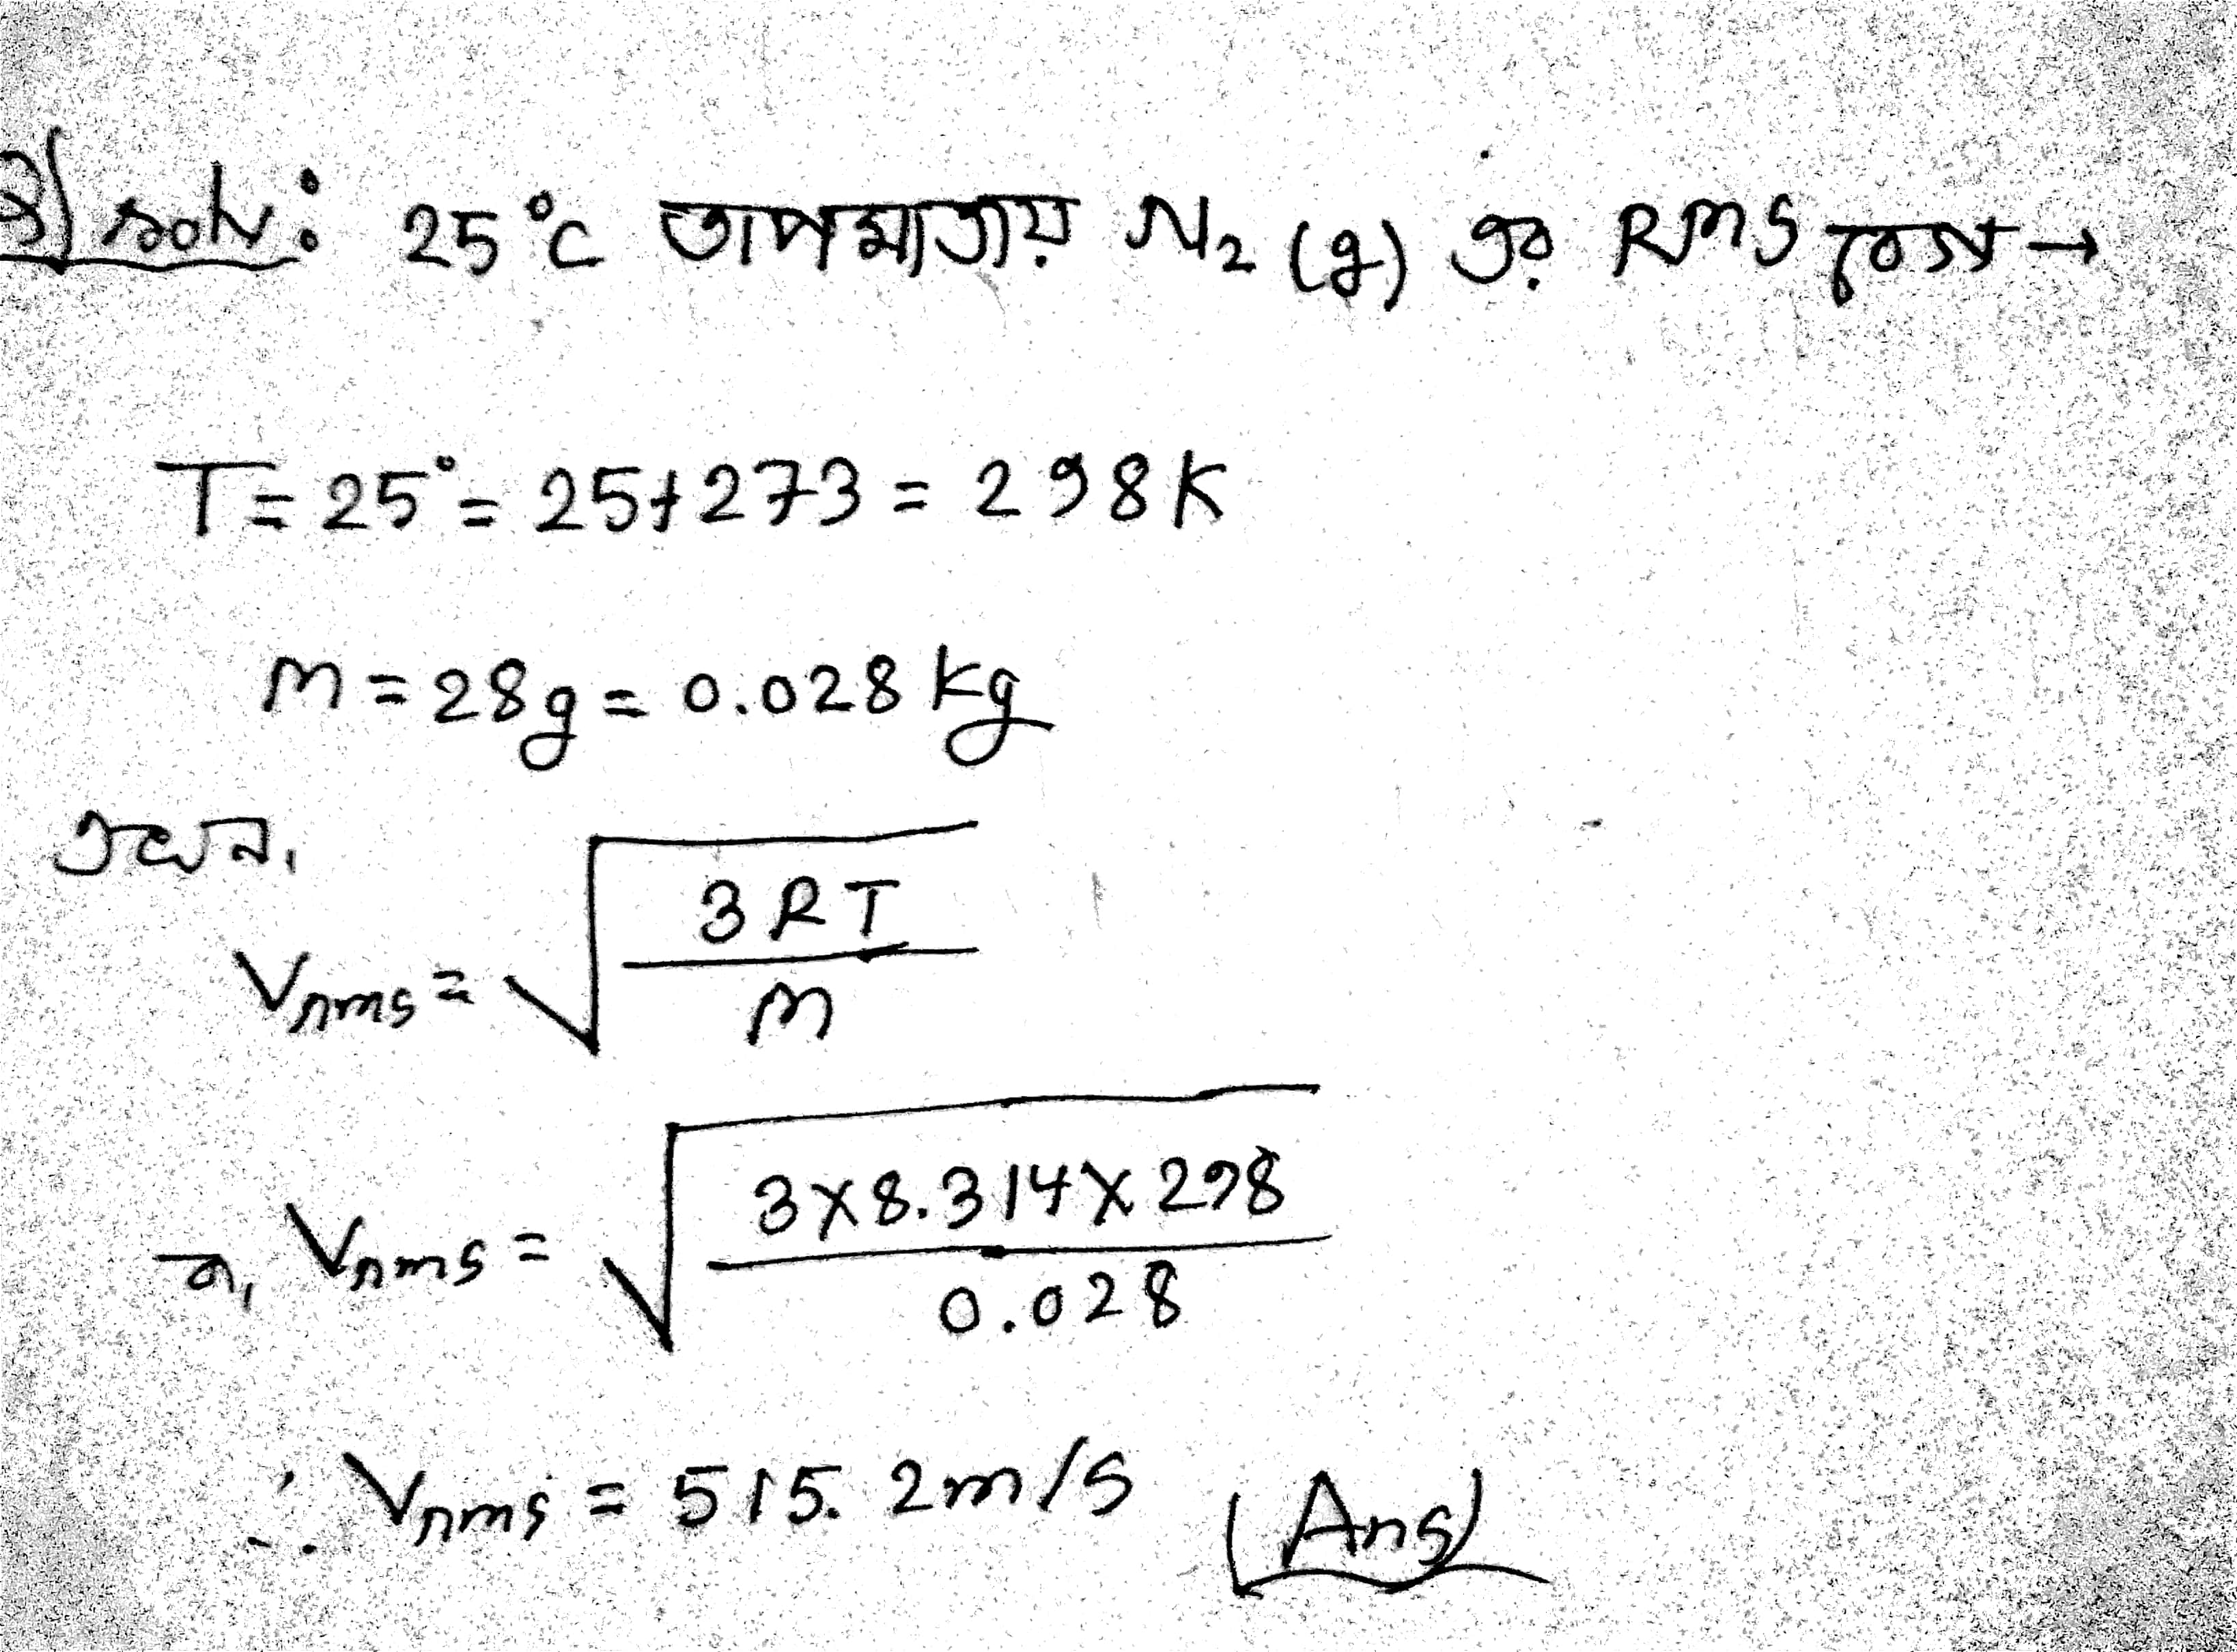 ২) solv: 25°C তাপমাত্রায় N₂ (g) এর RMS বেগ →
T = 25° = 25+273 = 298K
M = 28g = 0.028 kg
এখন,
Vrms = √(3RT / M)
বা, Vrms = √(3×8.314×298 / 0.028)
∴ Vrms = 515.2 m/s (Ans)